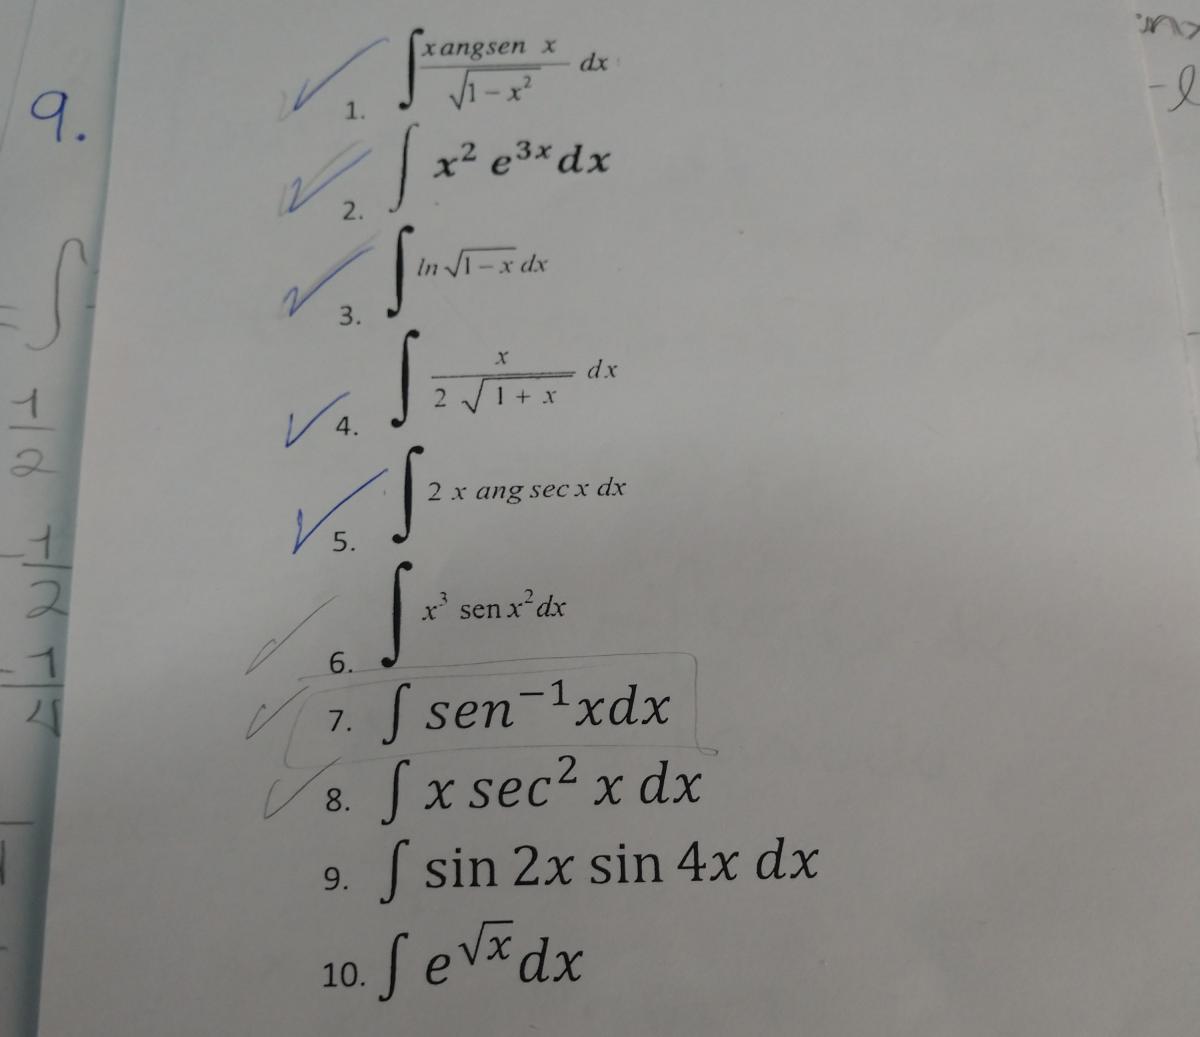 1. ∫ x angsen x / √1 − x² dx
2. ∫ x² e³ˣ dx
3. ∫ ln √1 − x dx
4. ∫ x / 2 √1 + x dx
5. ∫ 2 x ang sec x dx
6. ∫ x³ sen x² dx
7. ∫ sen⁻¹xdx
8. ∫ x sec² x dx
9. ∫ sin 2x sin 4x dx
10. ∫ e^√x dx
9.
= ∫
1/2
- 1/2